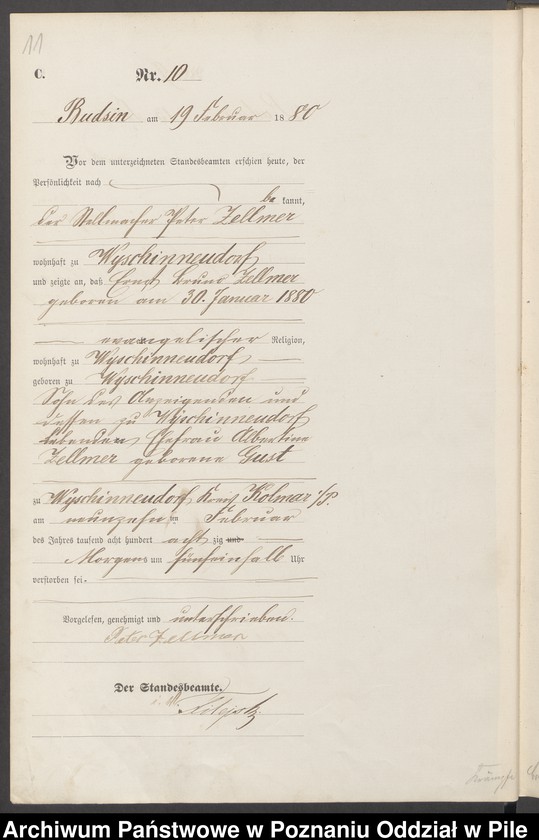 11
C. Nr. 10
Budsin am 19 Februar 1880
Vor dem unterzeichneten Standesbeamten erschien heute, der
Persönlichkeit nach
be kannt,
der Stellmacher Peter Zellmer
wohnhaft zu Wyschinneudorf
und zeigte an, daß Ernst Bruno Zellmer
geboren am 30. Januar 1880
evangelischer Religion,
wohnhaft zu Wyschinneudorf
geboren zu Wyschinneudorf
Sohn des Anzeigenden und
dessen zu Wyschinneudorf
lebenden Ehefrau Albertine
Zellmer geborene Gust
zu Wyschinneudorf Kreis Kolmar i/P.
am neunzehnten Februar
des Jahres tausend acht hundert acht zig und
Morgens um fünfeinhalb Uhr
verstorben sei.
Vorgelesen, genehmigt und unterschrieben.
Peter Zellmer
Der Standesbeamte.
Krämpfe
Archiwum Państwowe w Poznaniu Oddział w Pile